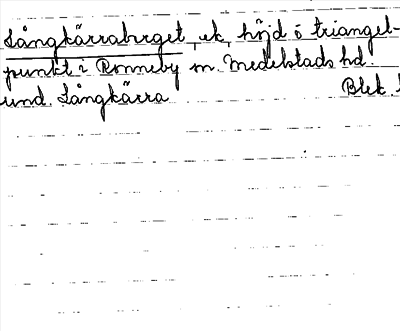 Långkärraberget, ek, höjd o triangel-
punkt i Ronneby m. Medelstads hd.
und. Långkärra Blek.